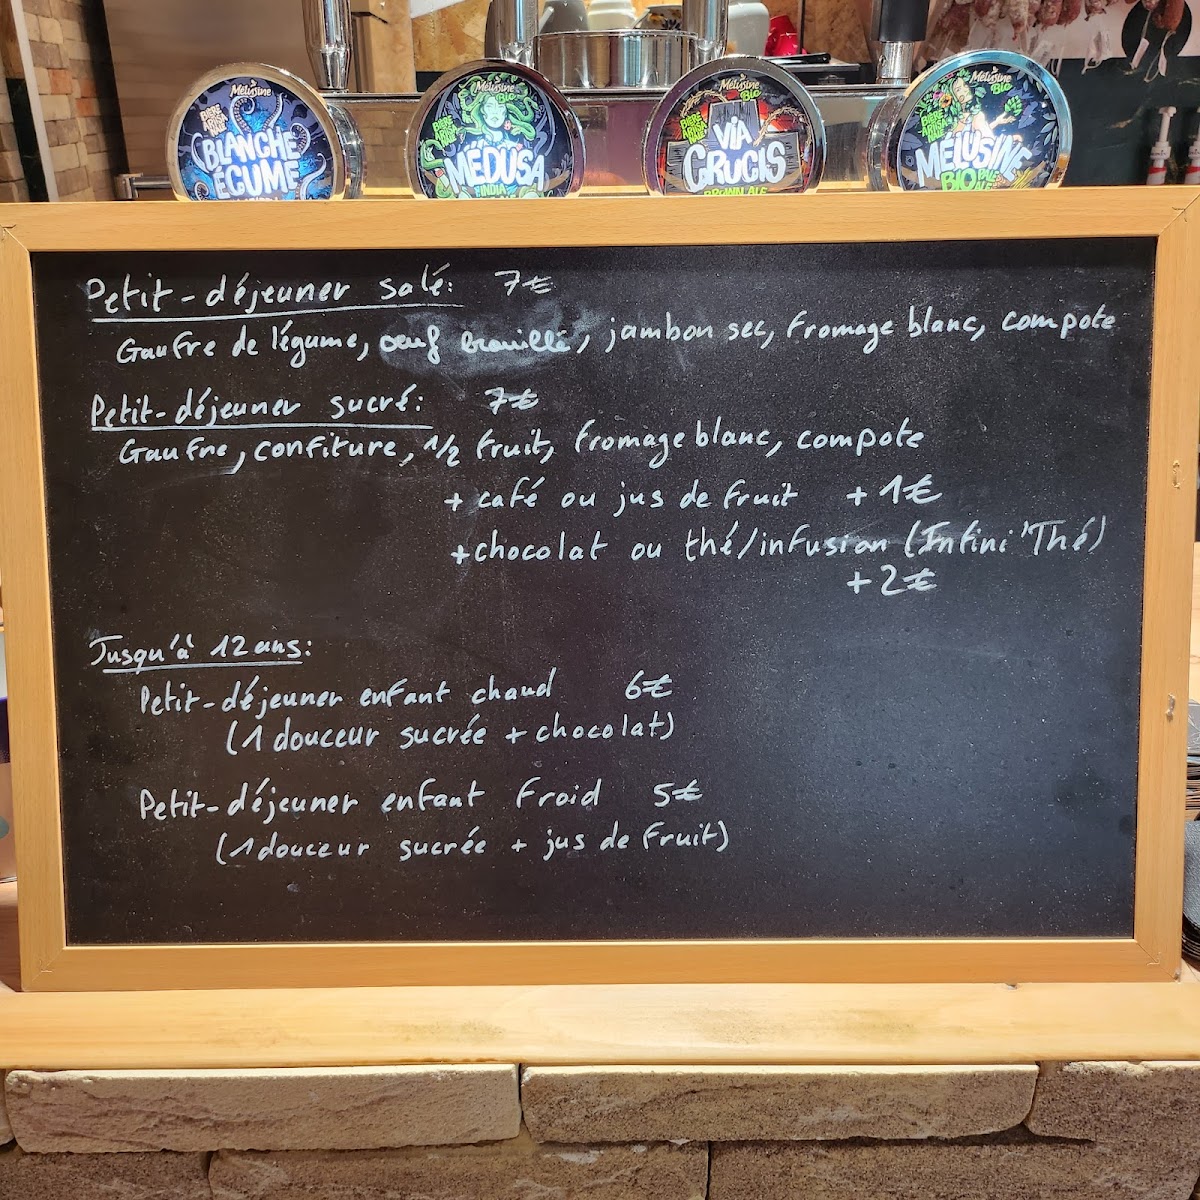 Mélusine
BIÈRE
BLANCHE
ÉCUME
Mélusine
BIO
MÉDUSA
INDIA
Mélusine
BIO
VIA
CRUCIS
BROWN ALE
Mélusine
BIO
MÉLUSINE
BIO PALE
ALE
Petit-déjeuner salé: 7€
Gaufre de légume, oeuf brouillé, jambon sec, fromage blanc, compote
Petit-déjeuner sucré: 7€
Gaufre, confiture, 1/2 fruit, fromage blanc, compote
+ café ou jus de fruit + 1€
+ chocolat ou thé/infusion (Infini'Thé)
+ 2€
Jusqu'à 12 ans:
Petit-déjeuner enfant chaud 6€
(1 douceur sucrée + chocolat)
Petit-déjeuner enfant froid 5€
(1 douceur sucrée + jus de fruit)